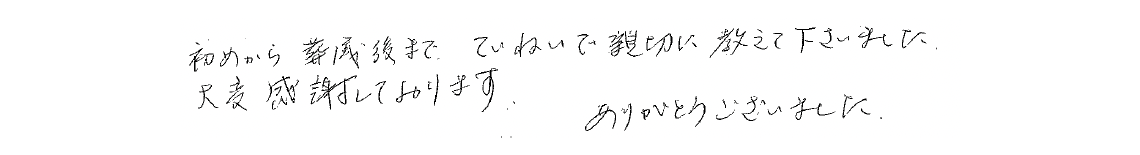 初めから葬儀後まで ていねいで親切に教えて下さいました.
大変感謝しております.
ありがとうございました.